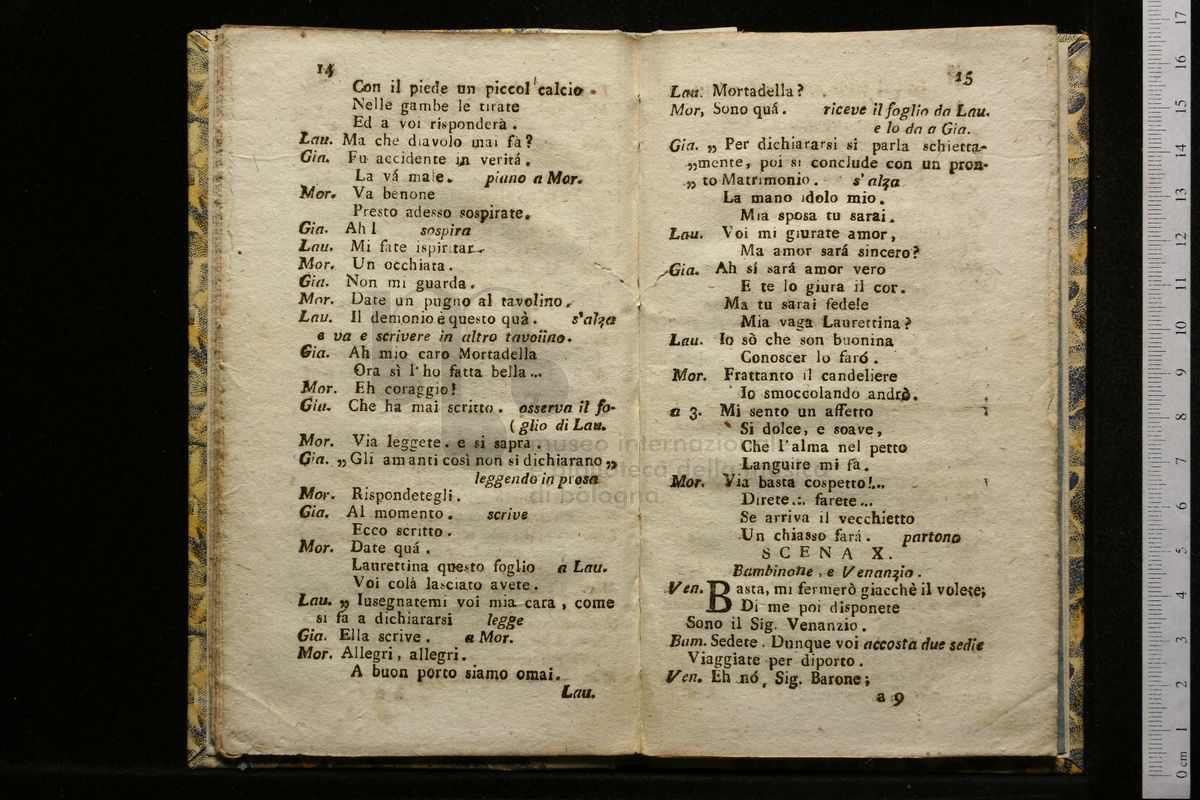 14
Con il piede un piccol calcio.
Nelle gambe le tirate
Ed a voi risponderà.
Lau. Ma che diavolo mai fà?
Gia. Fu accidente in veritá.
La vá male. piano a Mor.
Mor. Va benone
Presto adesso sospirate.
Gia. Ah! sospira
Lau. Mi fate ispiritar.
Mor. Un occhiata.
Gia. Non mi guarda.
Mor. Date un pugno al tavolino.
Lau. Il demonio è questo quà. s'alza
e va e scrivere in altro tavolino.
Gia. Ah mio caro Mortadella
Ora sì l'ho fatta bella...
Mor. Eh coraggio!
Gia. Che ha mai scritto. osserva il fo-
(glio di Lau.
Mor. Via leggete. e si sapra.
Gia. „ Gli amanti così non si dichiarano „
leggendo in prosa
Mor. Rispondetegli.
Gia. Al momento. scrive
Ecco scritto.
Mor. Date quá.
Laurettina questo foglio a Lau.
Voi colá lasciato avete.
Lau. „ Iusegnatemi voi mia cara, come
si fa a dichiararsi legge
Gia. Ella scrive. a Mor.
Mor. Allegri, allegri.
A buon porto siamo omai.
Lau.
15
Lau. Mortadella?
Mor, Sono quá. riceve il foglio da Lau.
e lo da a Gia.
Gia. „ Per dichiararsi si parla schietta-
„mente, poi si conclude con un pron-
„ to Matrimonio. s'alza
La mano idolo mio.
Mia sposa tu sarai.
Lau. Voi mi giurate amor,
Ma amor sará sincero?
Gia. Ah sí sará amor vero
E te lo giura il cor.
Ma tu sarai fedele
Mia vaga Laurettina?
Lau. Io sò che son buonina
Conoscer lo faró.
Mor. Frattanto il candeliere
Io smoccolando andrò.
a 3. Mi sento un affetto
Si dolce, e soave,
Che l'alma nel petto
Languire mi fà.
Mor. Via basta cospetto!...
Direte... farete...
Se arriva il vecchietto
Un chiasso fará. partono
SCENA X.
Bambinone, e Venanzio.
Ven. Basta, mi fermerò giacchè il volete;
Di me poi disponete
Sono il Sig. Venanzio.
Bam. Sedete. Dunque voi accosta due sedie
Viaggiate per diporto.
Ven. Eh nó, Sig. Barone;
a 9
museo internazionale
biblioteca della musica
di bologna
0 cm 1 2 3 4 5 6 7 8 9 10 11 12 13 14 15 16 17